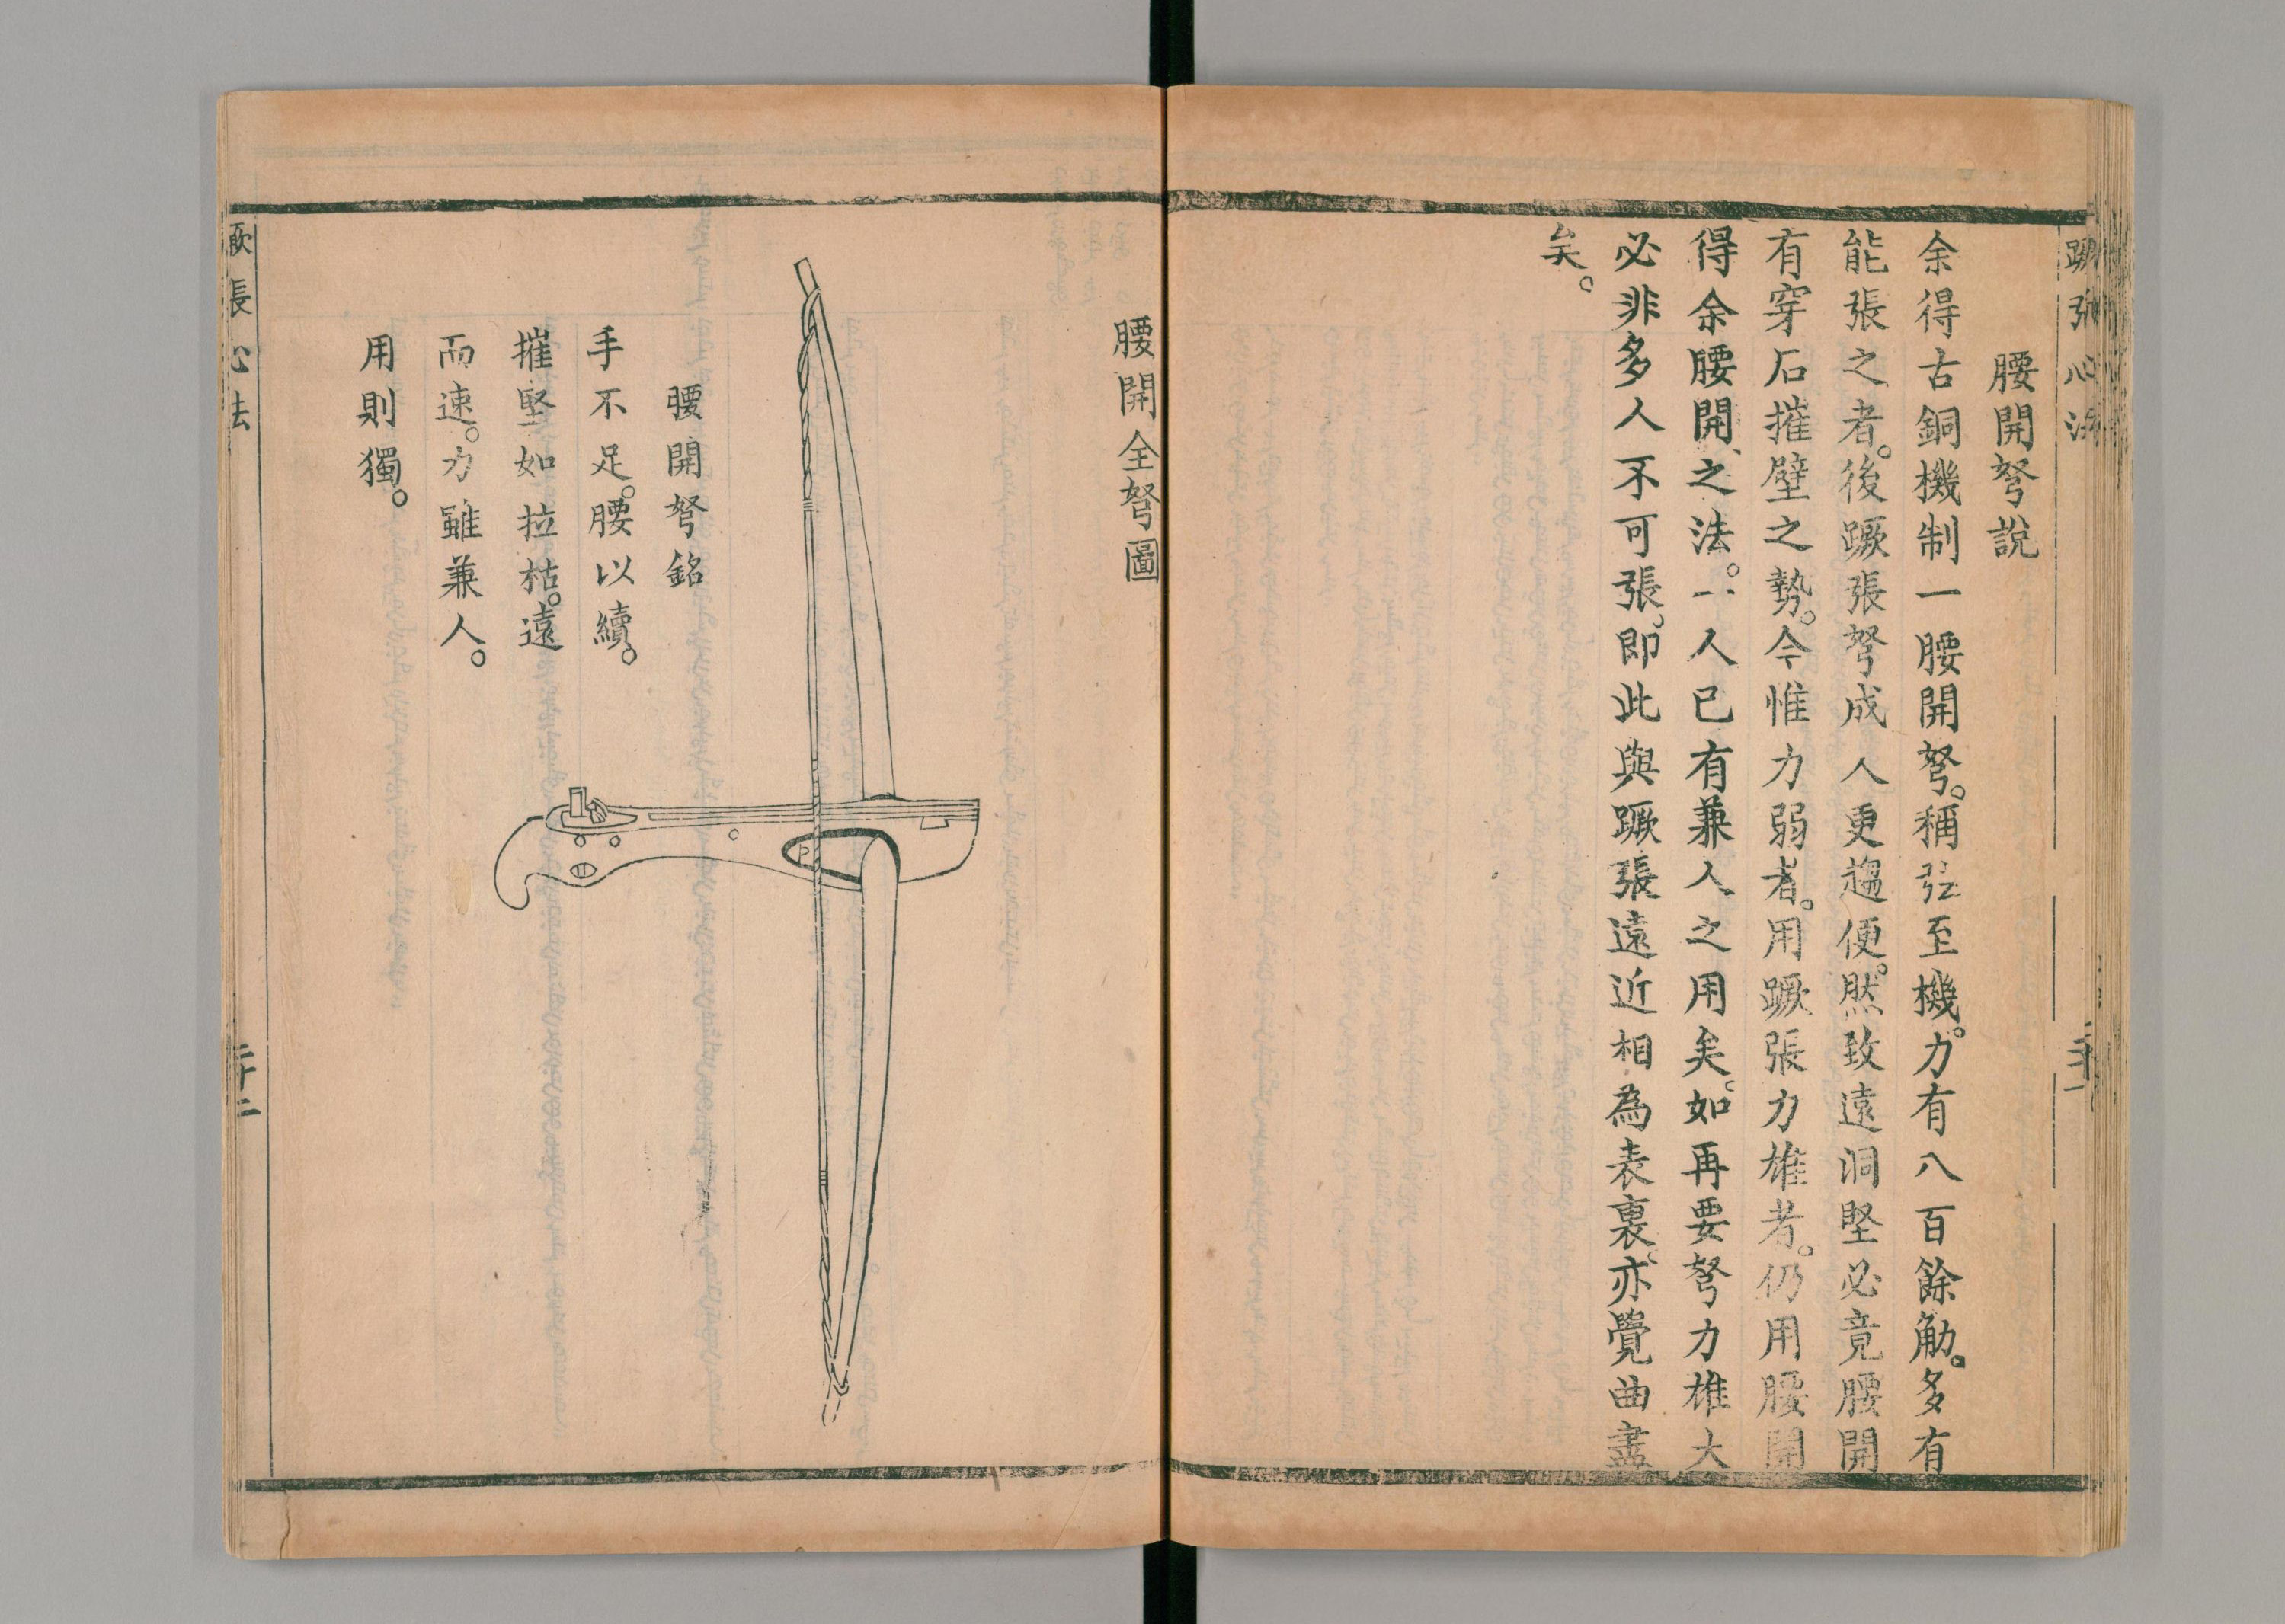 蹶張心法
腰開弩說
余得古銅機制一腰開弩。稱弦至機。力有八百餘觔。多有
能張之者。後蹶張弩成人更趨便。然致遠洞堅必竟腰開
有穿石摧壁之勢。今惟力弱者。用蹶張力雄者。仍用腰開
得余腰開之法。一人已有兼人之用矣。如再要弩力雄大
必非多人不可張。即此與蹶張遠近相為表裏。亦覺曲盡
矣。
腰開全弩圖
腰開弩銘
手不足。腰以續。
摧堅如拉枯。遠
而速。力雖兼人。
用則獨。
蹶張心法
二十二